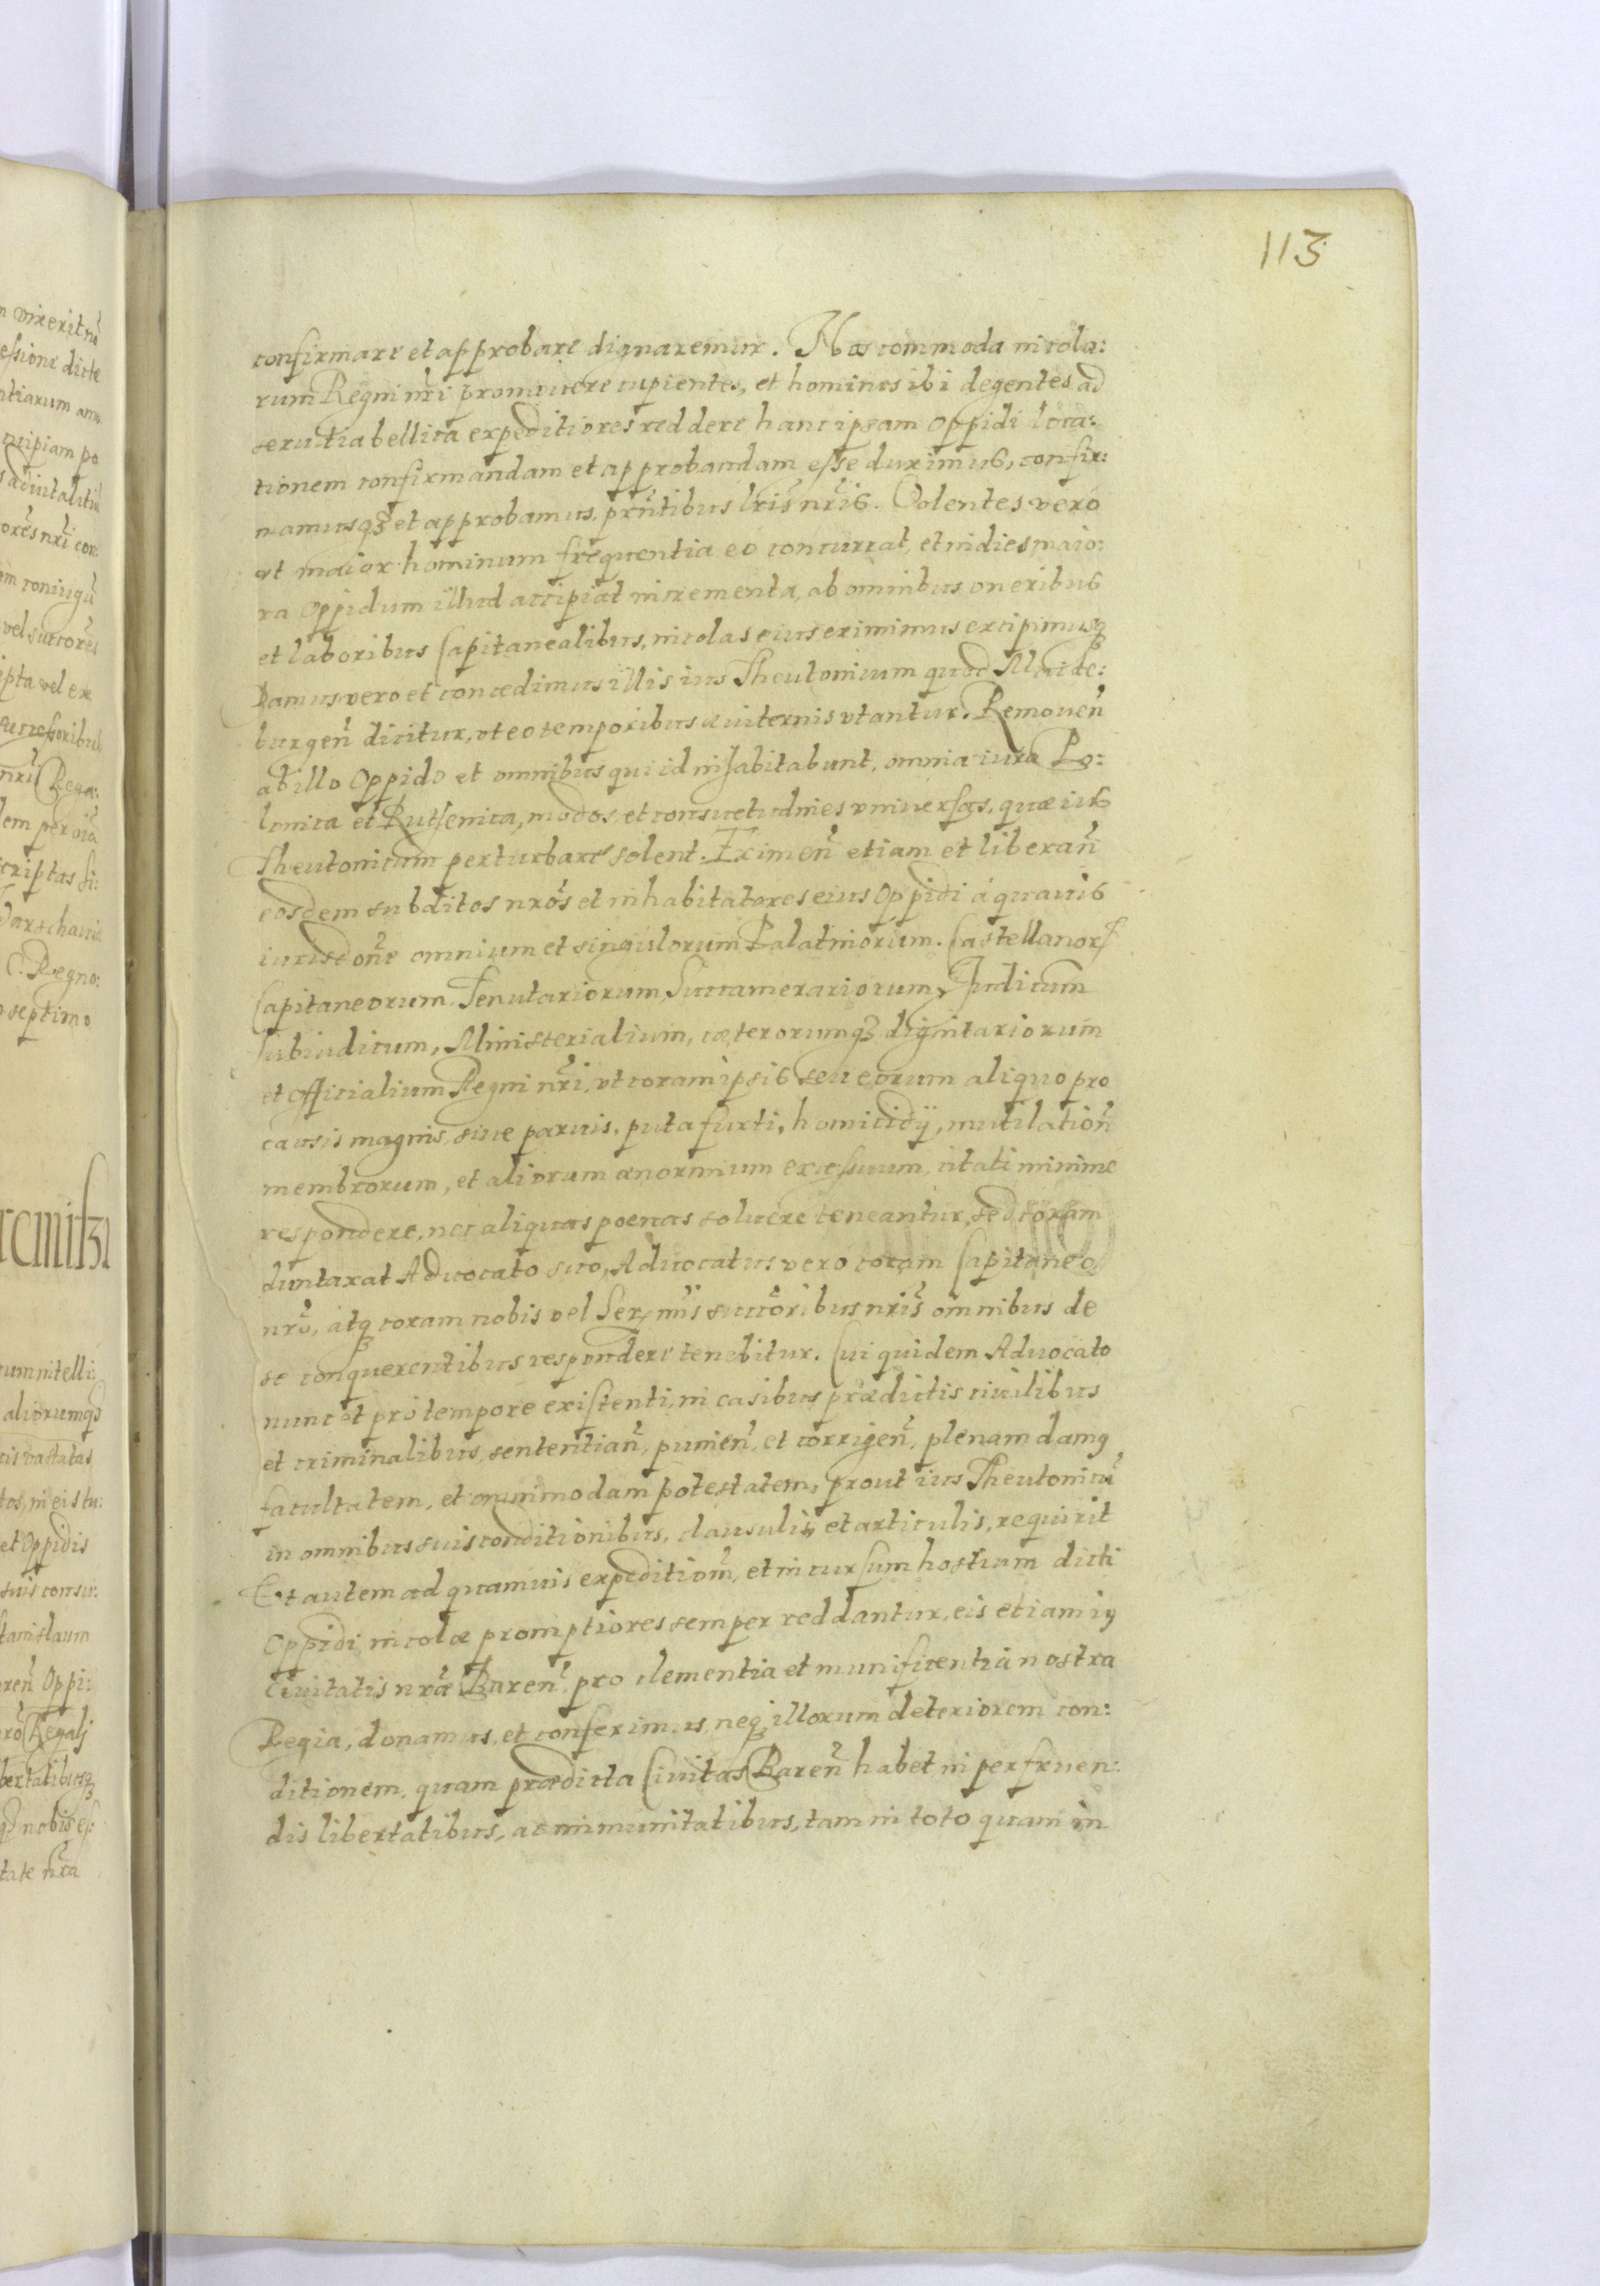 113
confirmare et approbare dignaremur. Nos commoda incola:
rum Regni nr̃i promovere cupientes, et homines ibi degentes ad
servitia bellica expeditiores reddere hanc ipsam oppidi loca:
tionem confirmandam et approbandam esse duximus, confir:
mamusq3 et approbamus, pr̃ntibus lr̃is nr̃is. Volentes vero
ut maior hominum frequentia eo concurrat, et indies maio:
ra Oppidum illud accipiat incrementa, ab omnibus oneribus
et laboribus Capitanealibus, incolas eius eximimus excipimusq
Damus vero et concedimus illis ius Theutonicum quod Maide:
burgeñ dicitur, ut eo temporibus æviternis utantur. Removeñ
ab illo Oppido et omnibus qui id inhabitabunt, omnia iura Po:
lonica et Ruthenica, modos et consuetudines universas, quæ ius
Theutonicum perturbare solent. Eximeñ etiam et liberañ
eosdem subditos nr̃os et inhabitatores eius Oppidi à quavis
iurisdoñe omnium et singulorum Palatinorum. Castellanor
Capitaneorum Tenutariorum Succamerariorum, Judicum
Subiudicum, Ministerialium, cæterorumq3 dignitariorum
et officialium Regni nr̃i, ut coram ipsis seu eorum aliquo pro
causis magnis, sive parvis, puta furti, homicidij, mutilationũ
membrorum, et aliorum ænormium excessuum, citati minime
respondere, nec aliquas poenas solvere teneantur, sed coram
duntaxat Advocato suo, Advocatus vero coram Capitaneo
nr̃o, atq coram nobis vel Ser̃mis succoribus nr̃is omnibus de
se conquerentibus respondere tenebitur. Cui quidem Advocato
nunc et pro tempore existenti, in casibus prædictis civilibus
et criminalibus, sententiañ, punieñ, et corrigeñ, plenam damq
facultatem, et omnimodam potestatem, prout ius Theutonicũ
in omnibus suis conditionibus, clausulis, et articulis, requirit
Ut autem ad quamvis expeditioñ, et incursum hostium dicti
Oppidi incolæ promptiores semper reddantur, eis etiam iy
Civitatis nr̃æ Bareñ. pro clementia et munificentia nostra
Regia, donamus, et conferimus, neq illorum deteriorem con:
ditionem, quam prædicta Civitas Bareñ habet in perfruen:
dis libertatibus, ac immunitatibus, tam in toto quam in